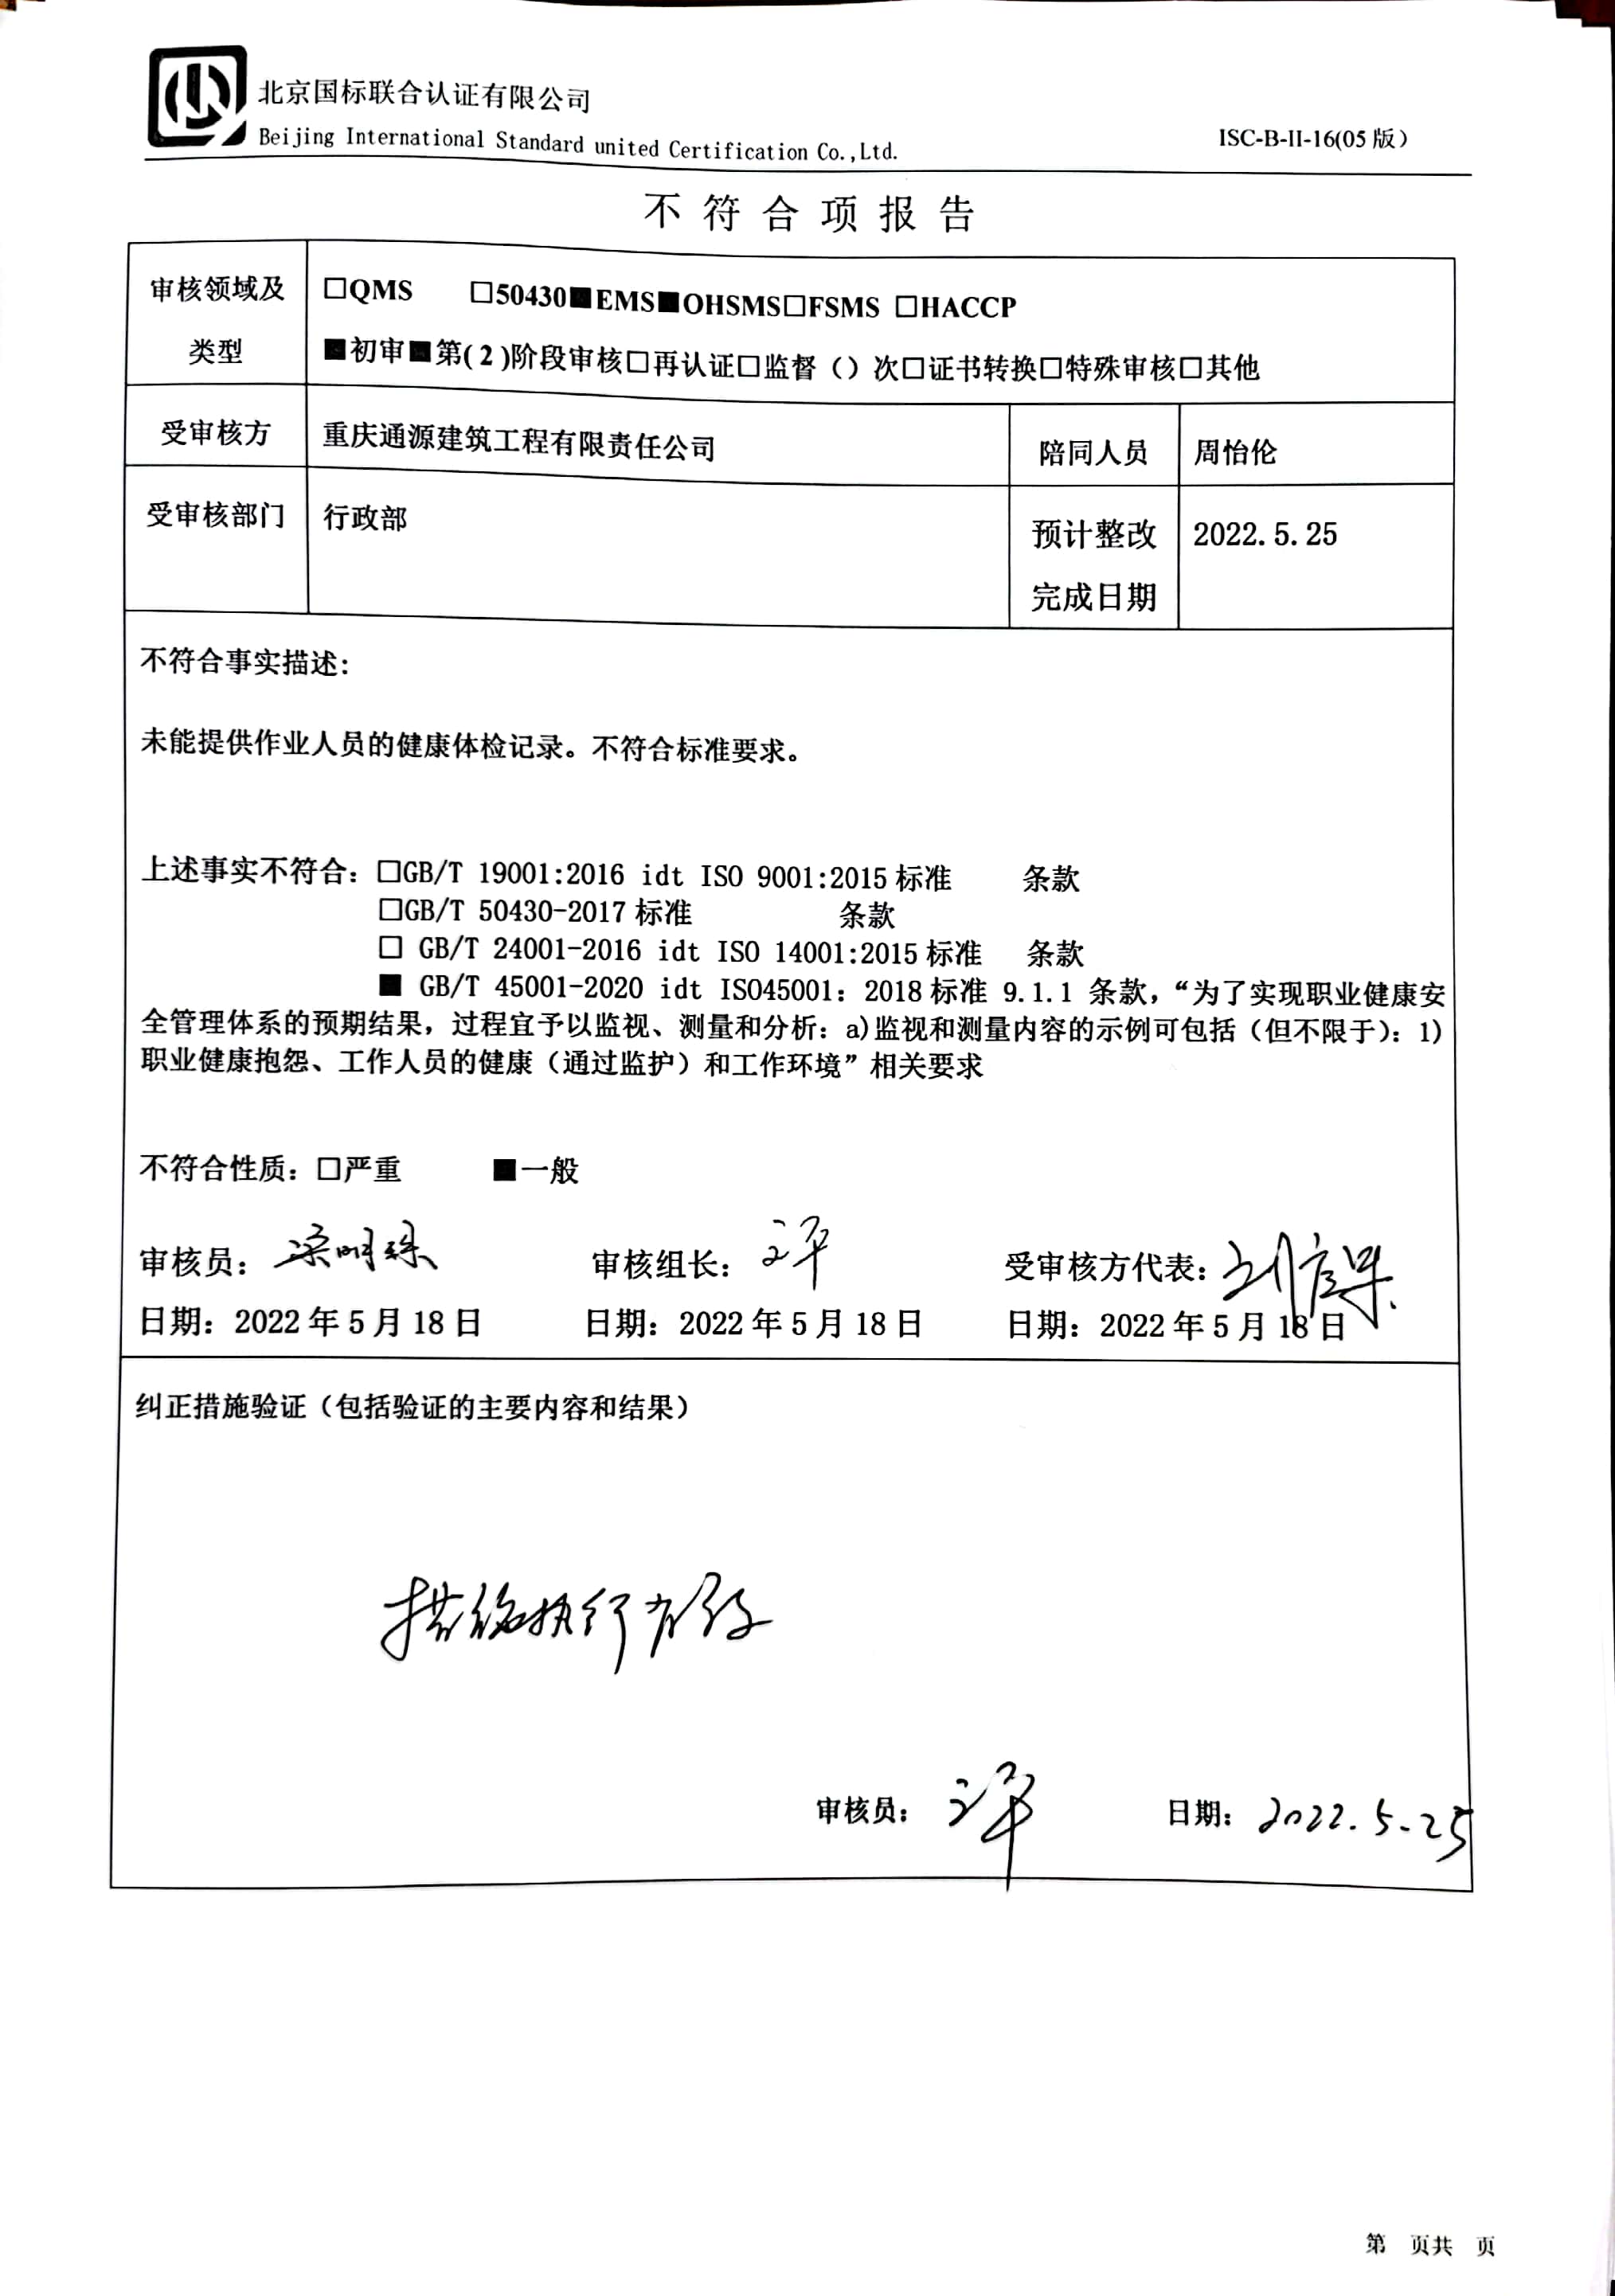 北京国标联合认证有限公司
Beijing International Standard united Certification Co.,Ltd.
ISC-B-II-16(05版)
不符合项报告
审核领域及类型
□QMS □50430■EMS■OHSMS□FSMS □HACCP
■初审■第(2)阶段审核□再认证□监督()次□证书转换□特殊审核□其他
受审核方 重庆通源建筑工程有限责任公司 陪同人员 周怡伦
受审核部门 行政部 预计整改完成日期 2022.5.25
不符合事实描述:
未能提供作业人员的健康体检记录。不符合标准要求。
上述事实不符合: □GB/T 19001:2016 idt ISO 9001:2015标准 条款
□GB/T 50430-2017标准 条款
□ GB/T 24001-2016 idt ISO 14001:2015标准 条款
■ GB/T 45001-2020 idt ISO45001: 2018标准 9.1.1 条款,“为了实现职业健康安
全管理体系的预期结果,过程宜予以监视、测量和分析: a)监视和测量内容的示例可包括(但不限于): 1)
职业健康抱怨、工作人员的健康(通过监护)和工作环境”相关要求
不符合性质: □严重 ■一般
审核员: 梁明珠 审核组长: 受审核方代表:
日期: 2022年5月18日 日期: 2022年5月18日 日期: 2022年5月18日
纠正措施验证(包括验证的主要内容和结果)
措施执行有效
审核员: 日期: 2022.5.25
第 页共 页